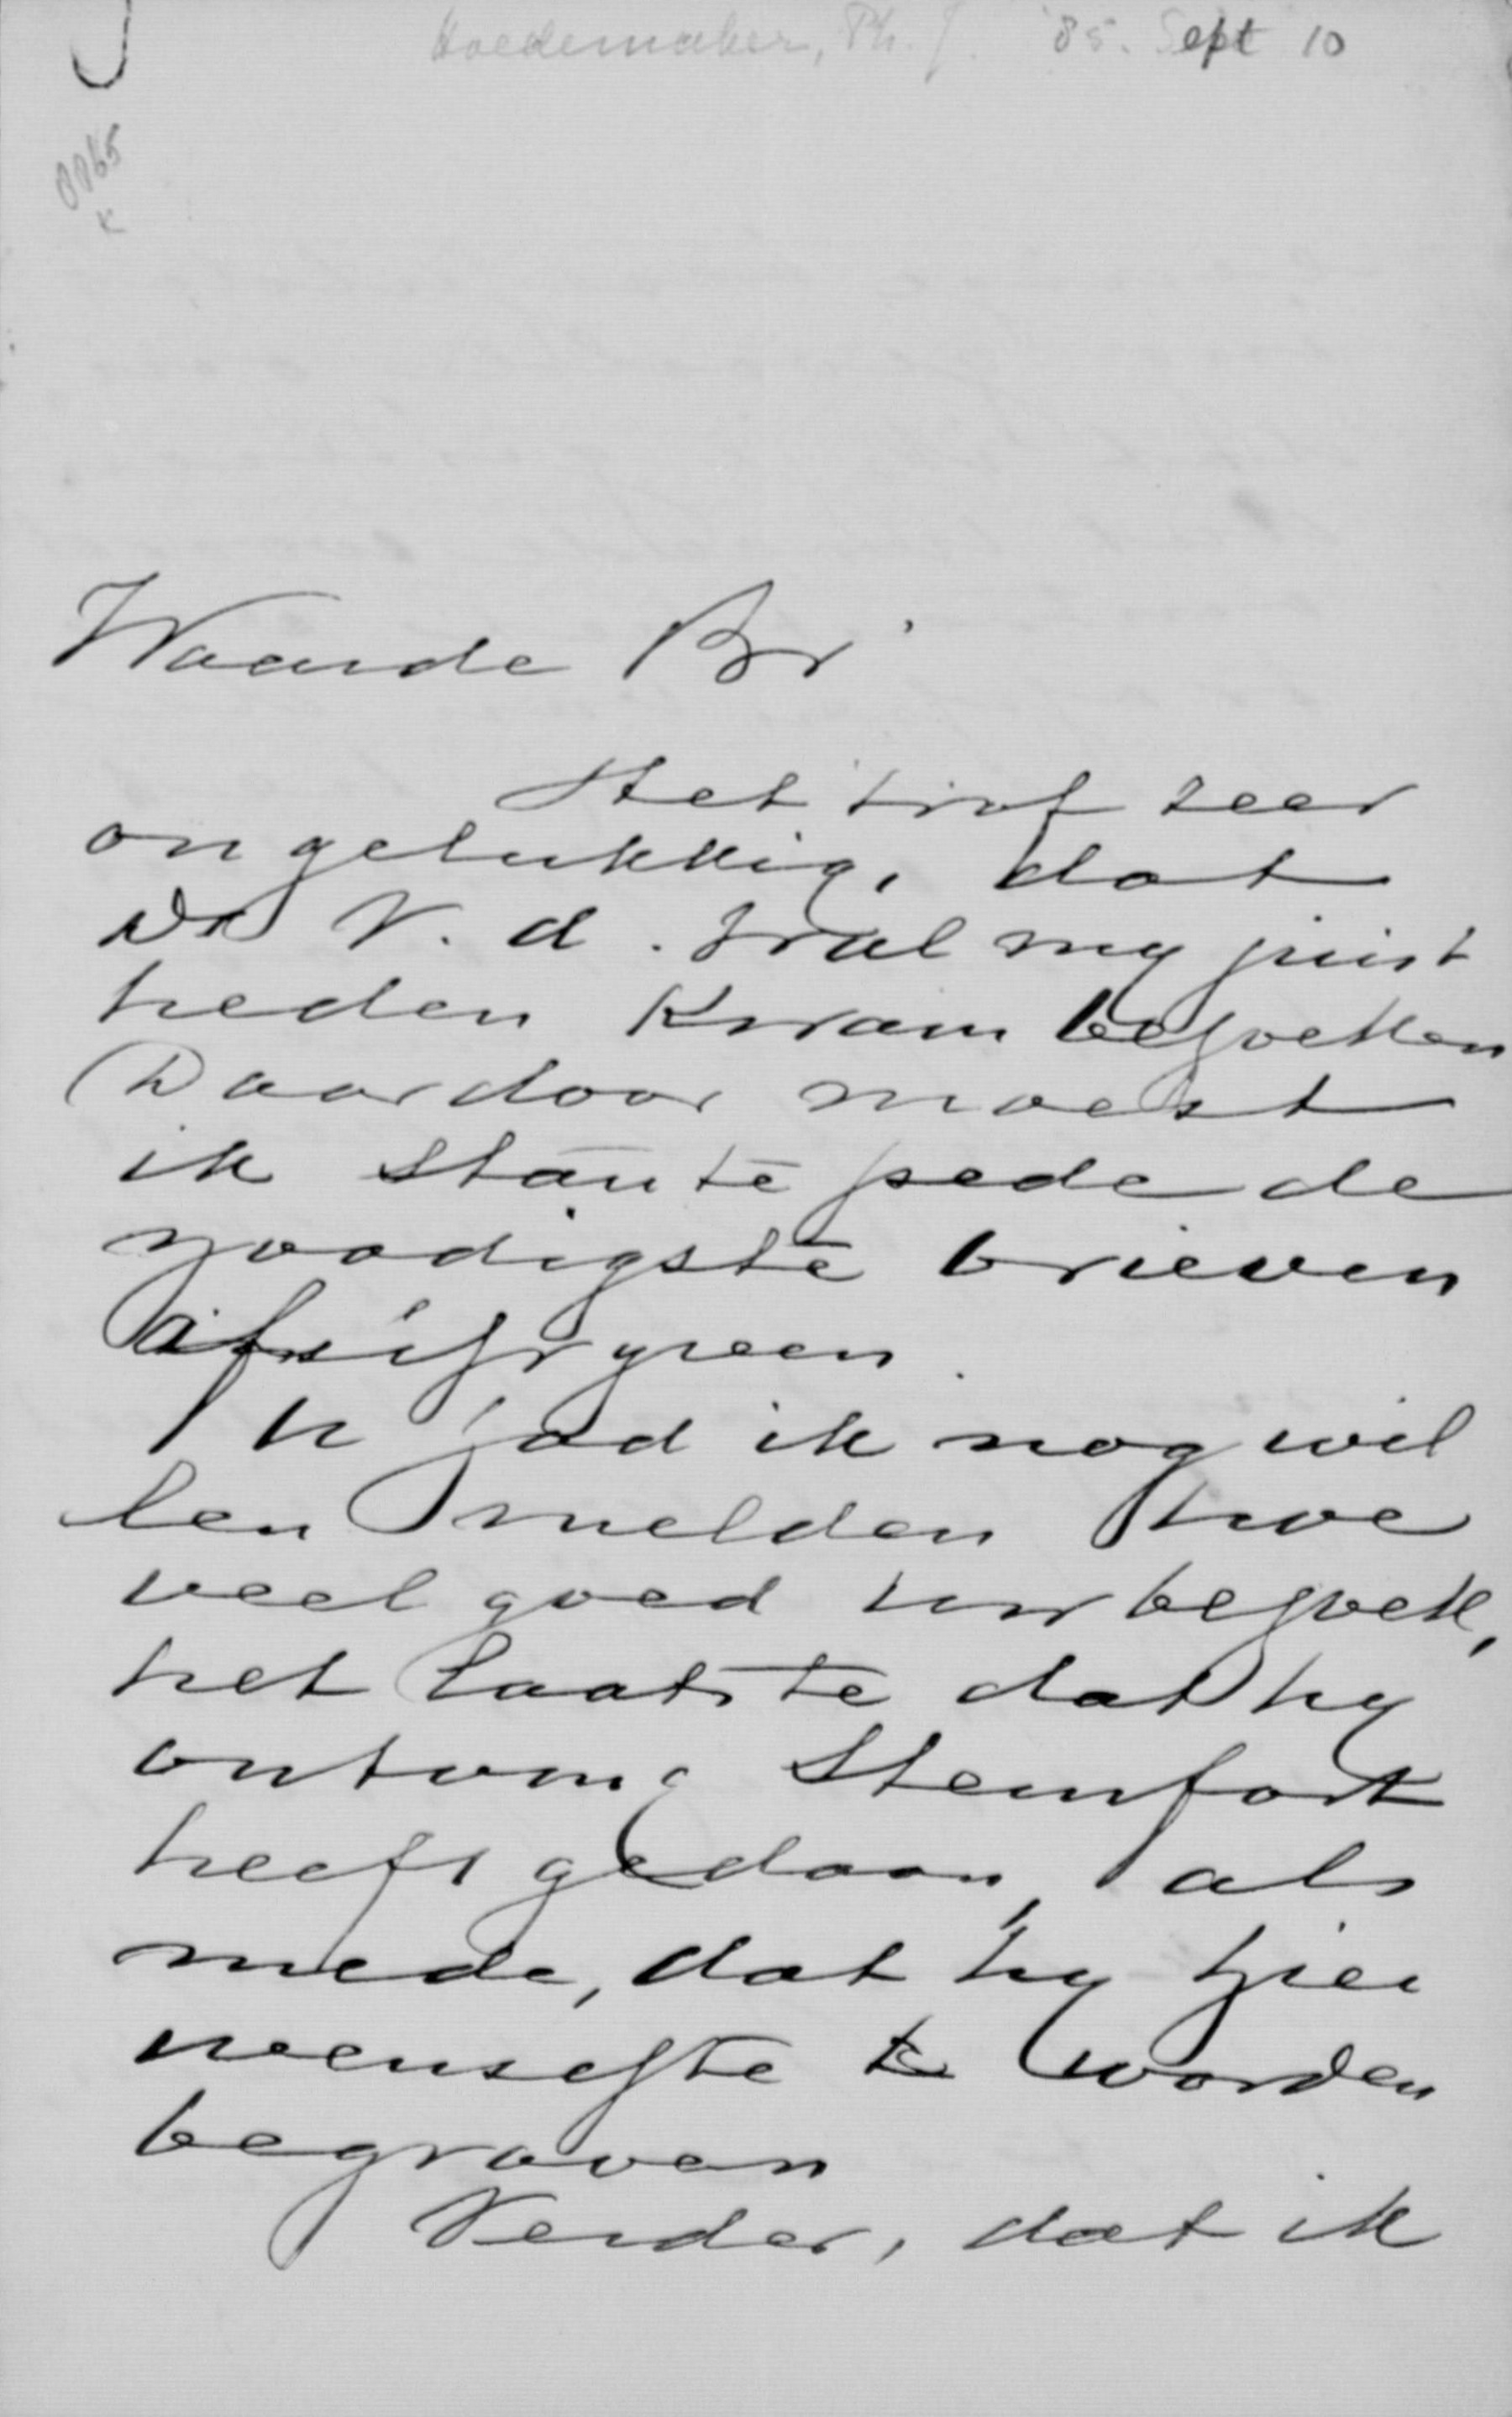 Hoedemaker, Ph. J. '85. Sept 10
Waarde Br
Het trof zeer
ongelukkig, dat
Ds V. d. my juist
heden kwam bezoeken
Daardoor moest
ik stante pede de
noodigste brieven
afschryven.
U had ik nog wil
len melden hoe
veel goed uw bezoek,
het laatste dat hy
ontving Steinfort
heeft gedaan, als
mede, dat hy hier
wenschte te worden
begraven
Verder, dat ik